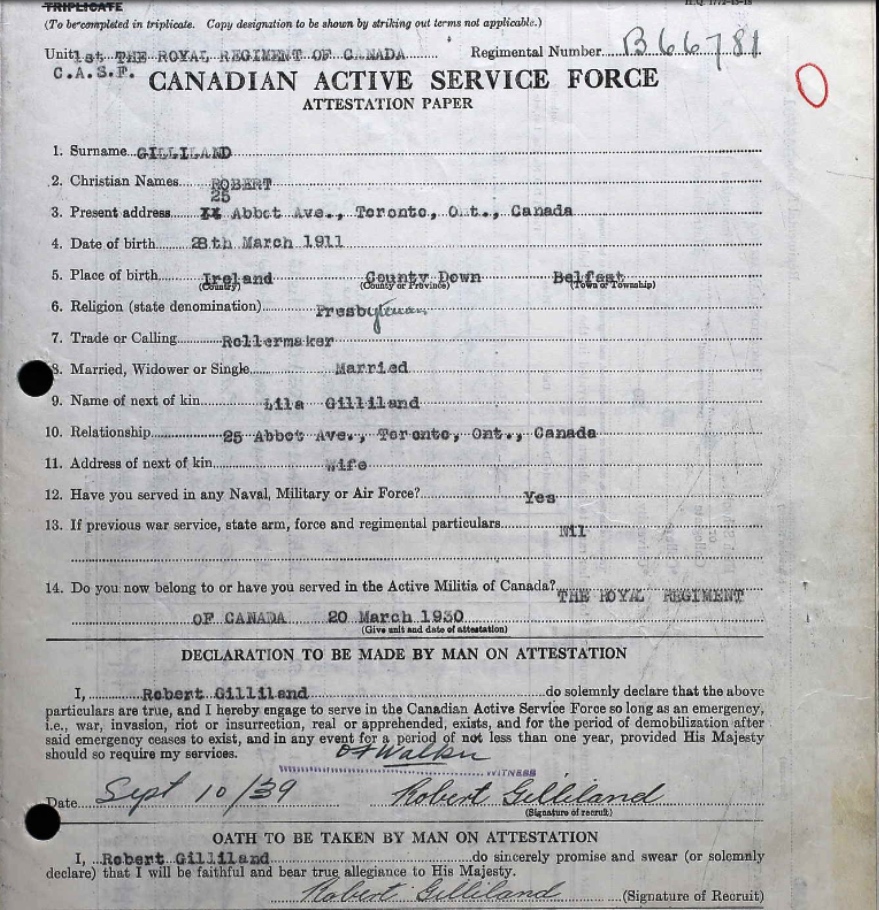 TRIPLICATE
(To be completed in triplicate. Copy designation to be shown by striking out terms not applicable.)
Unit 1st THE ROYAL REGIMENT OF CANADA Regimental Number B66781
C.A.S.F.
CANADIAN ACTIVE SERVICE FORCE
ATTESTATION PAPER
1. Surname GILLILAND
2. Christian Names ROBERT
25
3. Present address Abbot Ave., Toronto, Ont., Canada
4. Date of birth 28th March 1911
5. Place of birth Ireland County Down Belfast
(Country) (County or Province) (Town or Township)
6. Religion (state denomination) Presbyterian
7. Trade or Calling Rollermaker
8. Married, Widower or Single Married
9. Name of next of kin Lila Gilliland
10. Relationship 25 Abbot Ave., Toronto, Ont., Canada
11. Address of next of kin Wife
12. Have you served in any Naval, Military or Air Force? Yes
13. If previous war service, state arm, force and regimental particulars Nil
14. Do you now belong to or have you served in the Active Militia of Canada? THE ROYAL REGIMENT
OF CANADA 20 March 1930
(Give unit and date of attestation)
DECLARATION TO BE MADE BY MAN ON ATTESTATION
I, Robert Gilliland do solemnly declare that the above
particulars are true, and I hereby engage to serve in the Canadian Active Service Force so long as an emergency,
i.e., war, invasion, riot or insurrection, real or apprehended, exists, and for the period of demobilization after
said emergency ceases to exist, and in any event for a period of not less than one year, provided His Majesty
should so require my services. Walker
WITNESS
Date Sept 10/39 Robert Gilliland
(Signature of recruit)
OATH TO BE TAKEN BY MAN ON ATTESTATION
I, Robert Gilliland do sincerely promise and swear (or solemnly
declare) that I will be faithful and bear true allegiance to His Majesty.
Robert Gilliland (Signature of Recruit)